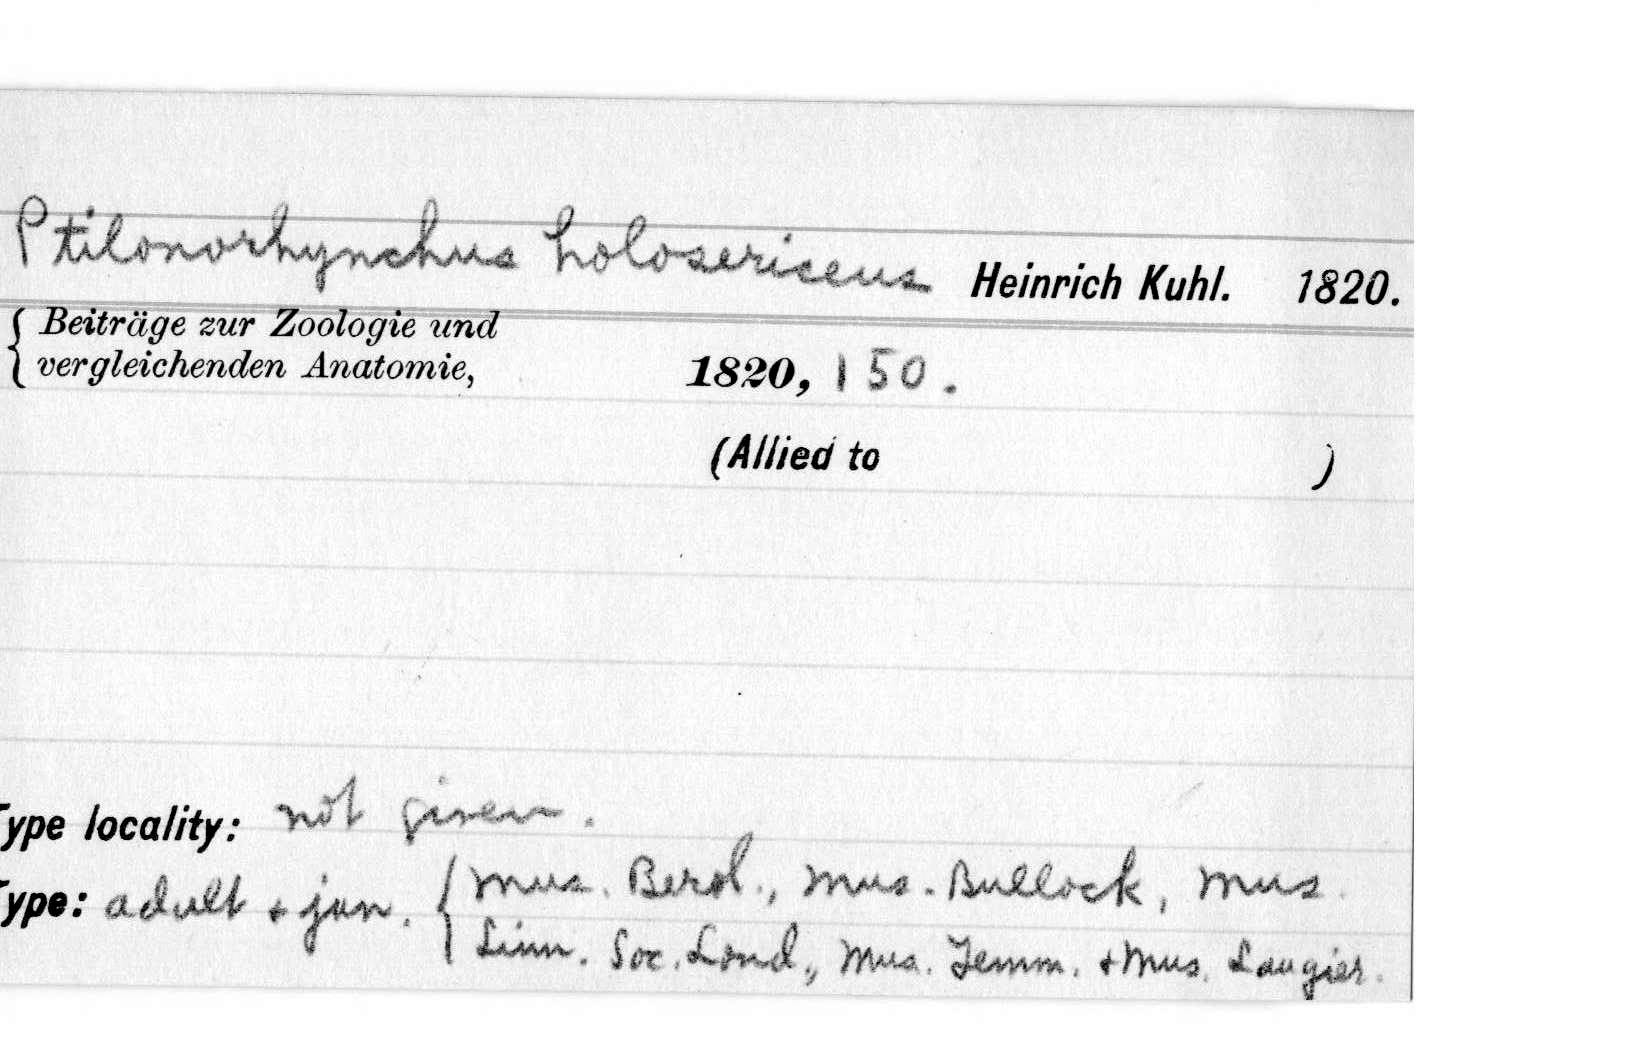 Ptilonorhynchus holosericeus Heinrich Kuhl. 1820.
{ Beiträge zur Zoologie und
vergleichenden Anatomie, 1820, 150.
(Allied to )
Type locality: not given.
Type: adult + juv. { Mus. Berol., Mus. Bullock, Mus.
Linn. Soc. Lond., Mus. Temm. + Mus. Laugier.